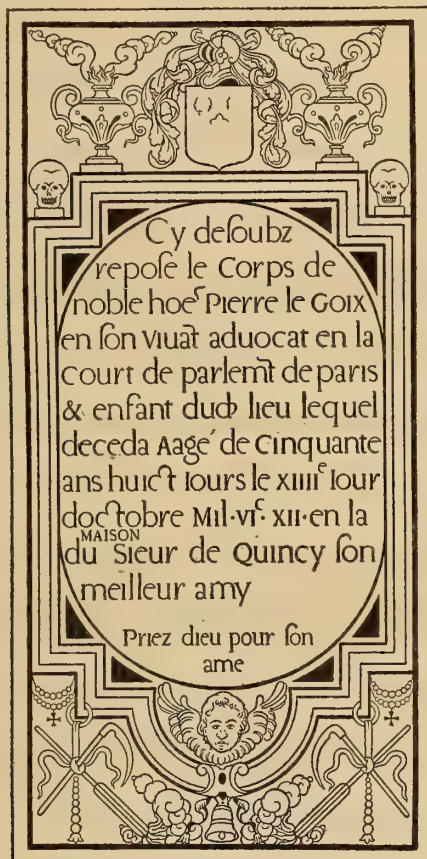 Cy deſoubz
repoſe le Corps de
noble hoeʳ Pierre le Goix
en ſon Viuāt aduocat en la
Court de parlem̃t de paris
& enfant dud lieu lequel
deceda Aagé de Cinquante
ans huict Iours le xiiiiᵉ Iour
doctobre Mil·viᶜ·xii·en la
MAISON
du Sieur de Quincy ſon
meilleur amy
Priez dieu pour ſon
ame